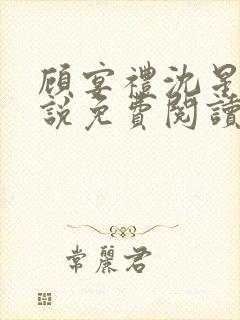 顾宴禮沈星
說免費閱讀
常麗君